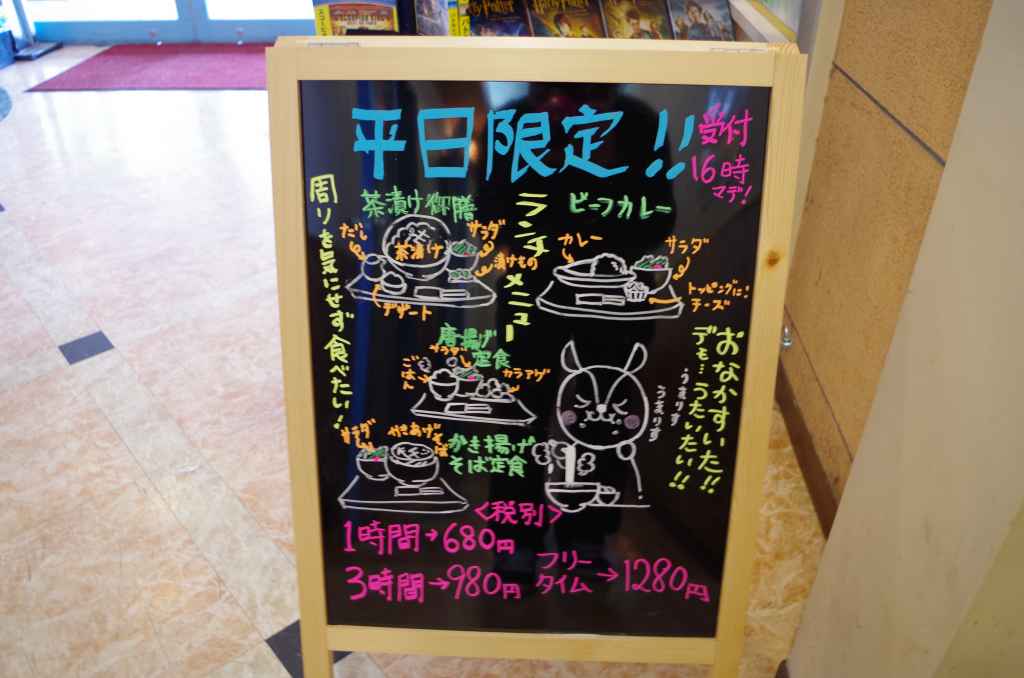 平日限定!!
受付
16時
マデ!
周りを気にせず食べたい!
茶漬け御膳
だし
茶漬け
サラダ
漬けもの
デザート
ランチメニュー
ビーフカレー
カレー
サラダ
トッピングに!
チーズ
唐揚げ
定食
サラダ
ごはん
カラアゲ
サラダ
かきあげそば
かき揚げ
そば定食
おなかすいた!!
デモ…うたいたい!!
うまりす
うまりす
<税別>
1時間→680円
3時間→980円
フリー
タイム→1280円